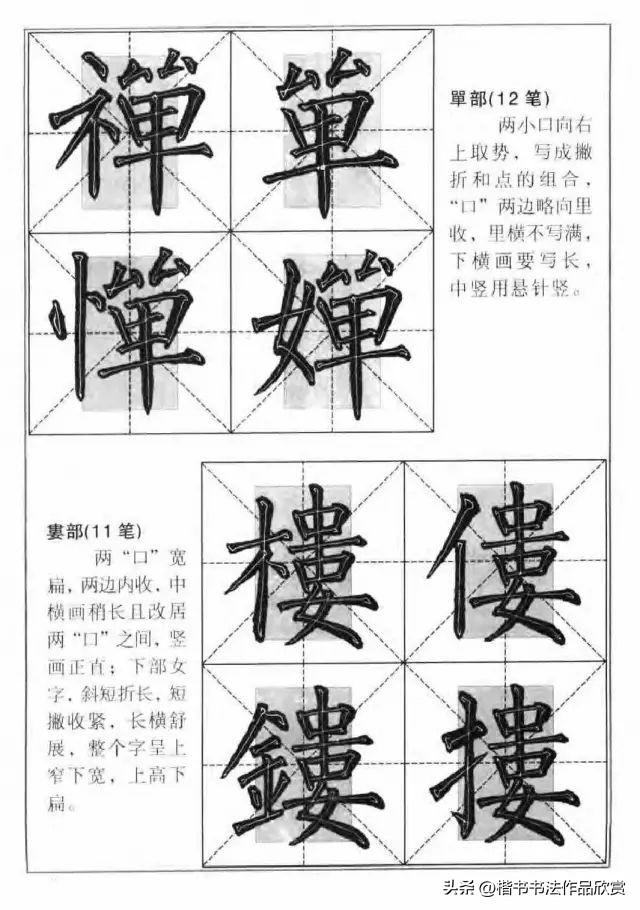 禪單
單部(12笔)
两小口向右
上取势，写成撇
折和点的组合，
“口”两边略向里
收，里横不写满，
下横画要写长，
中竖用悬针竖。
憚嬋
婁部(11笔)
两“口”宽
扁，两边内收，中
横画稍长且改居
两“口”之间，竖
画正直；下部女
字，斜短折长，短
撇收紧，长横舒
展，整个字呈上
窄下宽，上高下
扁。
樓僂
鏤摟
头条 @楷书书法作品欣赏